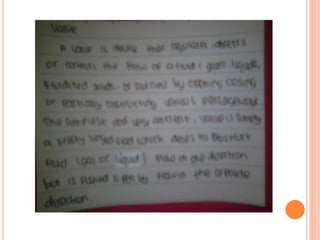 Valve
A valve is device that regulates, directs
or controls the flow of a fluid (gases, liquids,
fluidized solids, or by opening closing
or partially obstructing various passageways.
The simplest and very ancient, valve is simply
a freely hinged which to obstruct
fluid (gas or liquid) flow in one direction
but is pushed open by the opposite
direction.